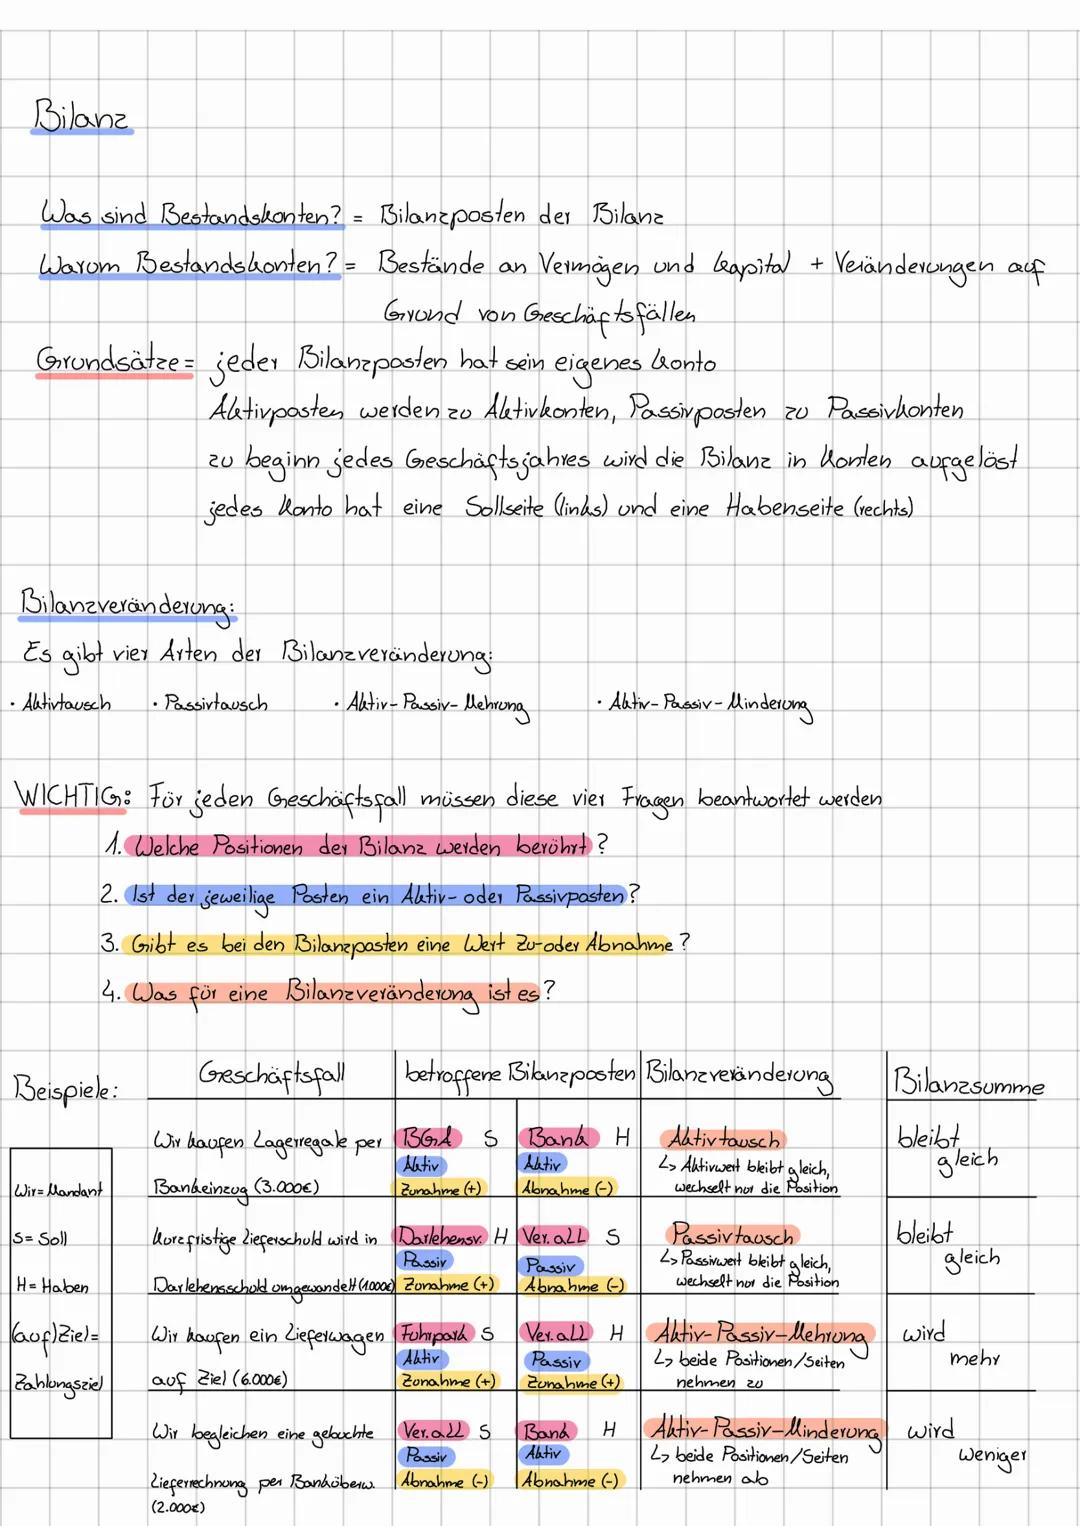 Bilanz
Was sind Bestandskonten? = Bilanzposten der Bilanz
Warum Bestandskonten? = Bestände an Vermögen und Kapital + Veränderungen auf
Grund von Geschäftsfällen
Grundsätze = jeder Bilanzposten hat sein eigenes Konto
Aktivposten werden zu Aktivkonten, Passivposten zu Passivkonten
zu beginn jedes Geschäftsjahres wird die Bilanz in Konten aufgelöst
jedes Konto hat eine Sollseite (links) und eine Habenseite (rechts)
Bilanzveränderung:
Es gibt vier Arten der Bilanzveränderung:
· Aktivtausch · Passivtausch · Aktiv-Passiv-Mehrung · Aktiv-Passiv-Minderung
WICHTIG: Für jeden Geschäftsfall müssen diese vier Fragen beantwortet werden
1. Welche Positionen der Bilanz werden berührt?
2. Ist der jeweilige Posten ein Aktiv- oder Passivposten?
3. Gibt es bei den Bilanzposten eine Wert Zu-oder Abnahme?
4. Was für eine Bilanzveränderung ist es?
Beispiele:
Wir= Mandant
S= Soll
H= Haben
(auf)Ziel=
Zahlungsziel
Geschäftsfall betroffene Bilanzposten Bilanzveränderung Bilanzsumme
Wir kaufen Lagerregale per BGA S Bank H Aktivtausch bleibt
Aktiv Aktiv ↳ Aktivwert bleibt gleich, gleich
Bankeinzug (3.000€) Zunahme (+) Abnahme (-) wechselt nur die Position
kurzfristige Lieferschuld wird in Darlehensv. H Ver. aLL S Passivtausch bleibt
Passiv Passiv ↳ Passivwert bleibt gleich, gleich
Darlehensschuld umgewandelt (1.000€) Zunahme (+) Abnahme (-) wechselt nur die Position
Wir kaufen ein Lieferwagen Fuhrpark S Ver. aLL H Aktiv-Passiv-Mehrung wird
Aktiv Passiv ↳ beide Positionen/Seiten mehr
auf Ziel (6.000€) Zunahme (+) Zunahme (+) nehmen zu
Wir begleichen eine gebuchte Ver. aLL S Bank H Aktiv-Passiv-Minderung wird
Passiv Aktiv ↳ beide Positionen/Seiten weniger
Lieferrechnung per Banküberw. Abnahme (-) Abnahme (-) nehmen ab
(2.000€)